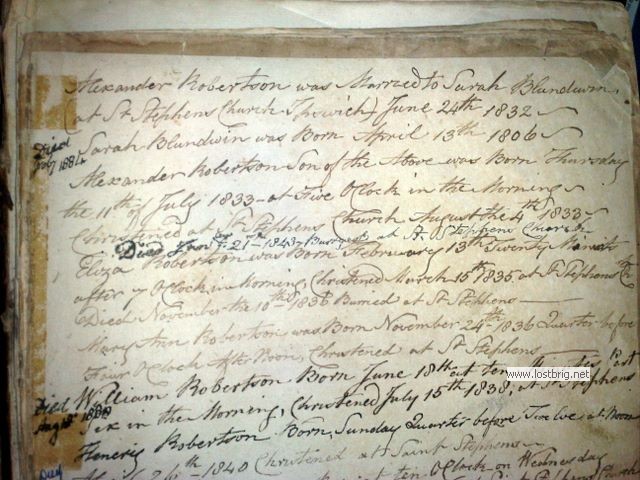 Alexander Robertson was Married to Sarah Blundwin,
(at St Stephens Church Ipswich) June 24th 1832
Died
Sarah Blundwin was Born April 13th 1806
1884
Alexander Robertson Son of the Above was Born Thursday
the 11th of July 1833 at Five O Clock in the Morning
Christened at St Stephens Church August the 4th 1833
Died 21 1843 Buried at St Stephens Church
Eliza Robertson was Born February 13th Twenty Minits
after O Clock in Morning, Christened March 15th 1835 at St Stephens Ch
Died November the 10th 1836 Buried at St Stephens
Mary Ann Robertson was Born November 24th 1836 Quarter before
Four O Clock After Noon, Christened at St Stephens
www.lostbrig.net
Died William Robertson Born June 18th at ten Past
Six in the Morning, Christened July 15th 1838, at St Stephens
Henery Robertson Born, Sunday Quarter before Twelve at Noon
26th 1840 Christened at Saint Stephens
at ten O Clock on Wednesday
Died